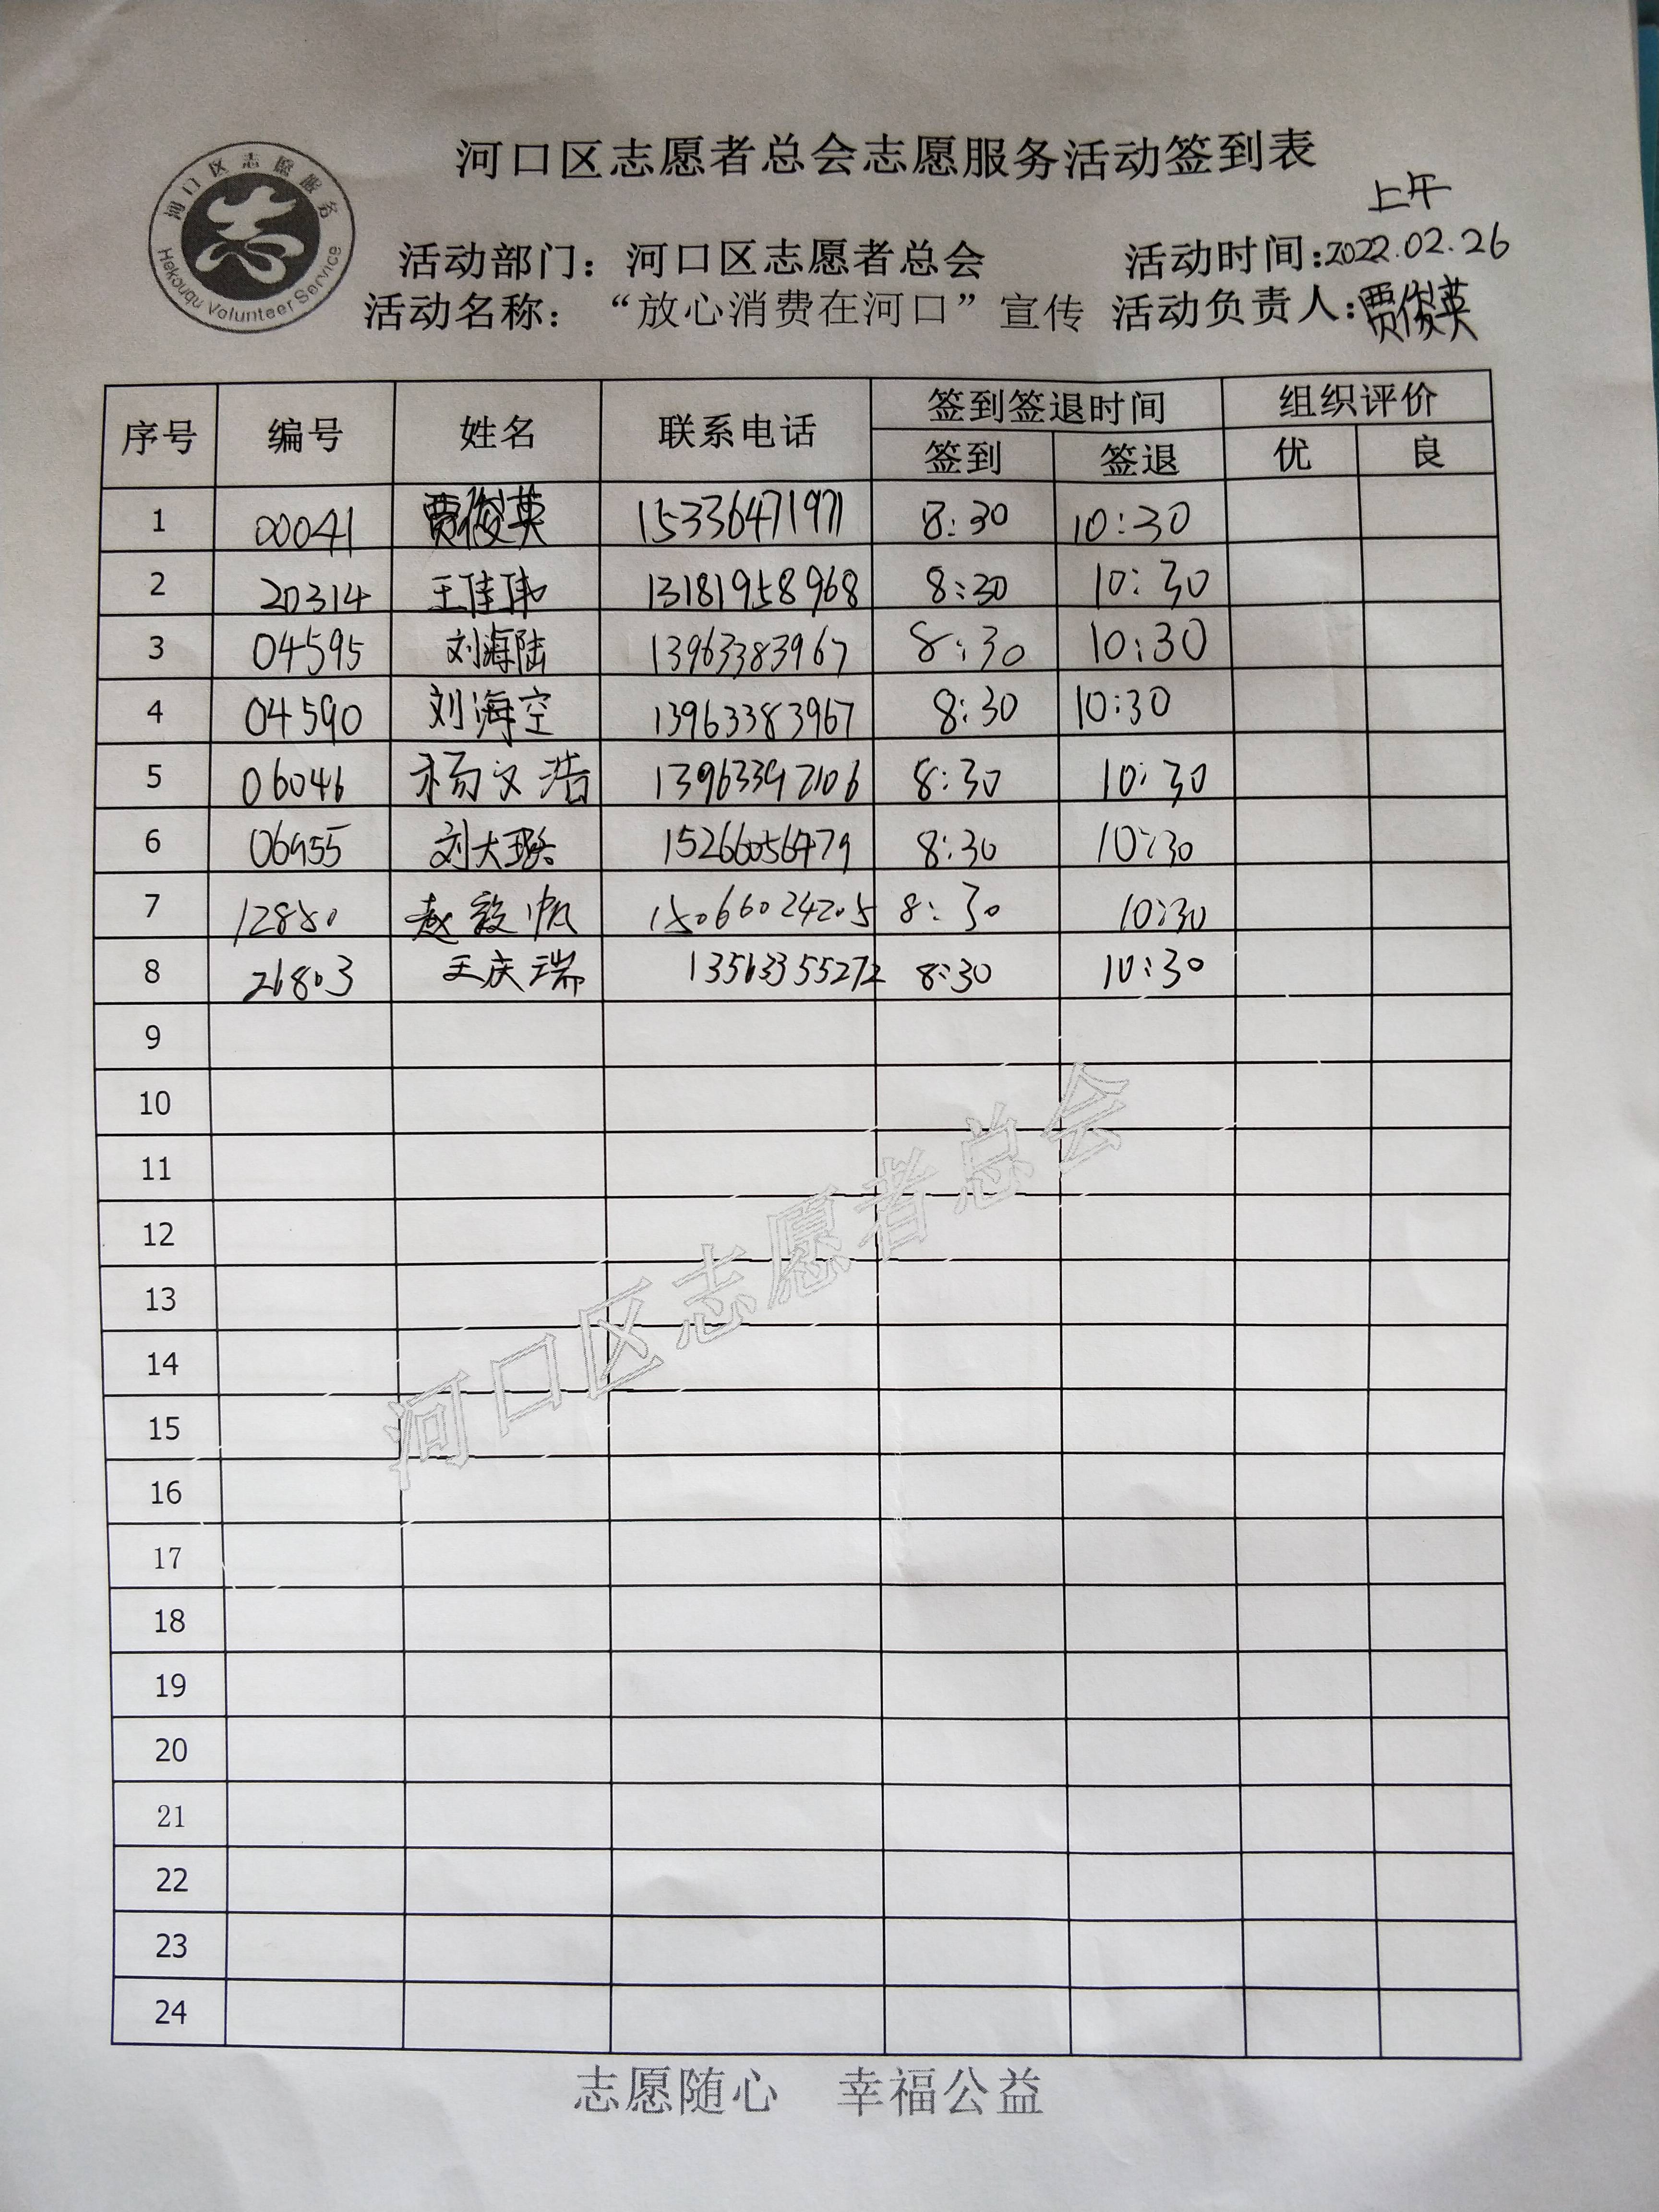 河口区志愿者总会志愿服务活动签到表
上午
河口区志愿服务
Hekouqu Volunteer Service
活动部门：河口区志愿者总会 活动时间：2022.02.26
活动名称：“放心消费在河口”宣传 活动负责人：贾俊英
序号 编号 姓名 联系电话 签到签退时间 组织评价
签到 签退 优 良
1 00041 贾俊英 15336471971 8:30 10:30
2 20314 王佳伟 13181958968 8:30 10:30
3 04595 刘海陆 13963383967 8:30 10:30
4 04590 刘海空 13963383967 8:30 10:30
5 06046 杨文浩 13963392106 8:30 10:30
6 刘大 15266056479 8:30 10:30
7 12880 赵 帆 15066024205 8:30 10:30
8 26803 王庆瑞 13563355272 8:30 10:30
9
10
11
12
13
14
15
16
17
18
19
20
21
22
23
24
河口区志愿者总会
志愿随心 幸福公益